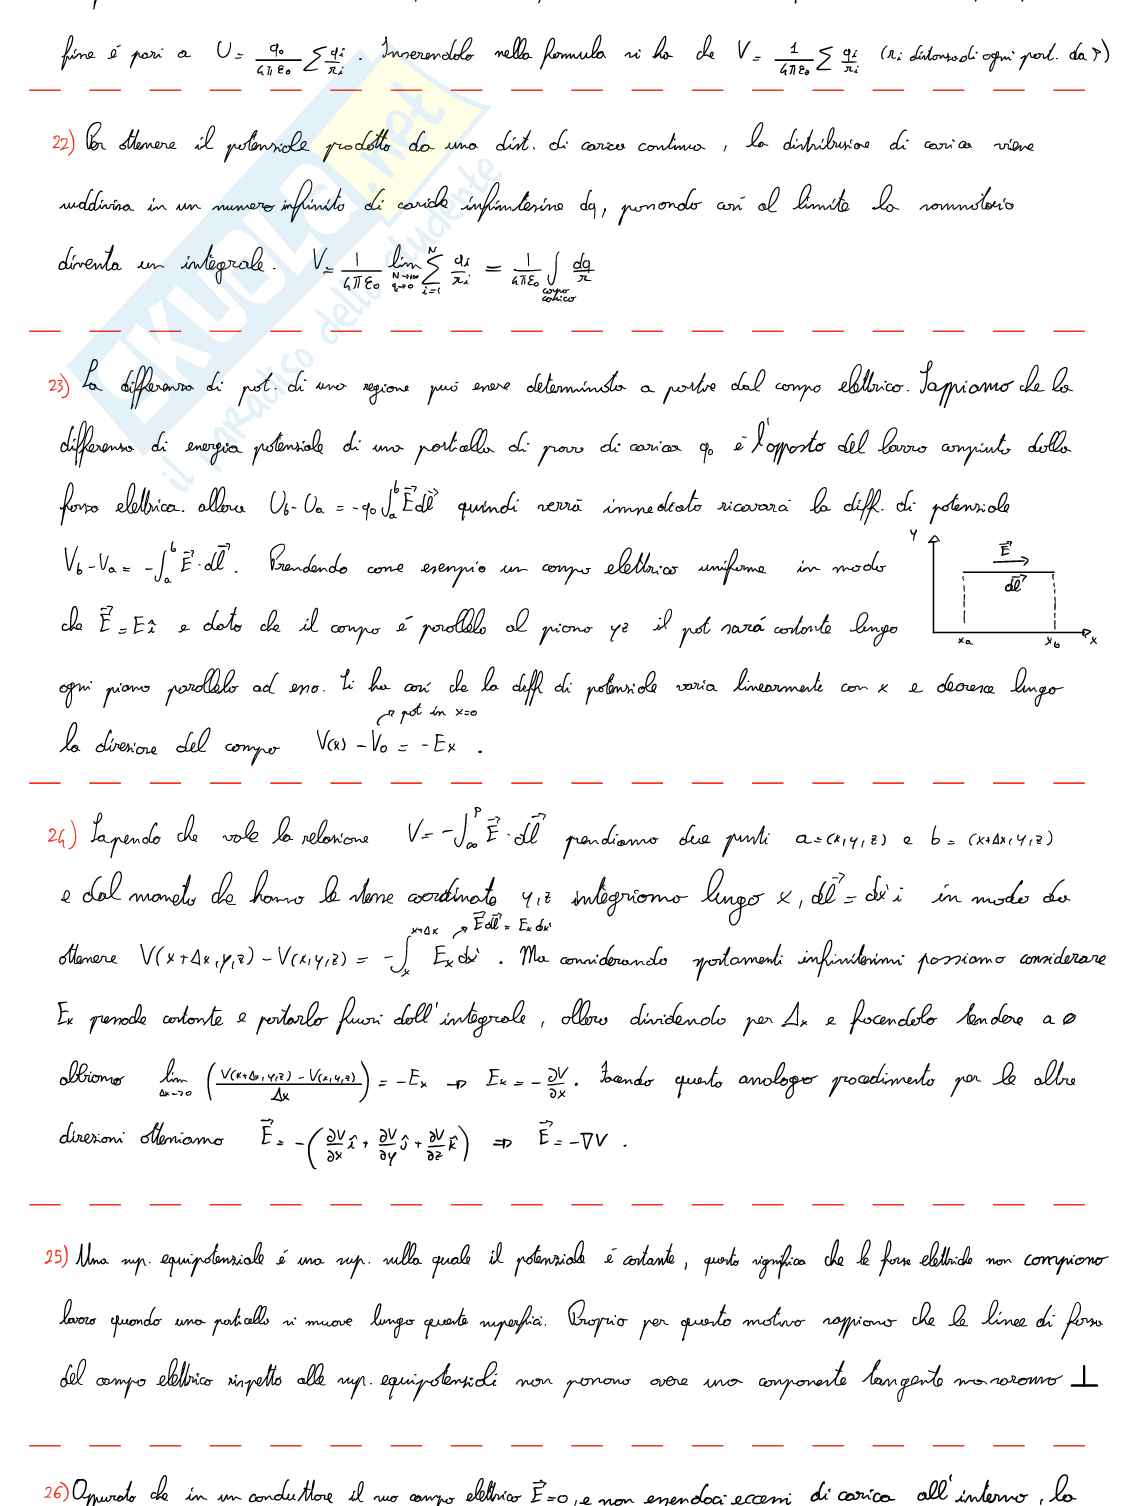 fine é pari a U = q₀/4πε₀ Σ qi/ri . Inserendolo nella formula si ha che V = 1/4πε₀ Σ qi/ri (ri distanza di ogni part. da P)
22) Per ottenere il potenziale prodotto da una dist. di carica continua, la distribuzione di carica viene
suddivisa in un numero infinito di cariche infinitesime dq, ponendo così al limite la sommatoria
diventa un integrale. V = 1/4πε₀ lim N→∞ q→0 Σ i=1 N qi/ri = 1/4πε₀ ∫ corpo carico dq/r
23) La differenza di pot. di una regione può essere determinata a partire dal campo elettrico. Sappiamo che la
differenza di energia potenziale di una particella di prova di carica q₀ è l'opposto del lavoro compiuto dalla
forza elettrica. allora Ub - Ua = -q₀ ∫ₐᵇ E⃗ dl⃗ quindi verrà immediato ricavarà la diff. di potenziale
Vb - Va = -∫ₐᵇ E⃗ · dl⃗ . Prendendo come esempio un campo elettrico uniforme in modo
y E⃗ dl⃗ xa xb x
che E⃗ = E î e dato che il campo é parallelo al piano yz il pot sarà costante lungo
ogni piano parallelo ad esso. Si ha così che la diff. di potenziale varia linearmente con x e decresce lungo
pot in x=0
la direzione del campo V(x) - V₀ = -Ex .
24) Sapendo che vale la relazione V = -∫∞ᴾ E⃗ · dl⃗ prendiamo due punti a = (x,y,z) e b = (x+Δx,y,z)
e dal momento che hanno le stesse coordinate y,z integriamo lungo x, dl⃗ = dx' i in modo da
E⃗dl⃗ = Ex dx'
ottenere V(x+Δx,y,z) - V(x,y,z) = -∫ₓˣ⁺ᐞˣ Ex dx' . Ma considerando spostamenti infinitesimi possiamo considerare
Ex pressoché costante e portarlo fuori dall'integrale, allora dividendo per Δx e facendolo tendere a 0
abbiamo lim Δx→0 (V(x+Δx,y,z) - V(x,y,z)/Δx) = -Ex → Ex = -∂V/∂x . Facendo questo analogo procedimento per le altre
direzioni otteniamo E⃗ = -(∂V/∂x î + ∂V/∂y ĵ + ∂V/∂z k̂) ⇒ E⃗ = -∇V .
25) Una sup. equipotenziale é una sup. sulla quale il potenziale é costante, questo significa che le forze elettriche non compiono
lavoro quando una particella si muove lungo queste superfici. Proprio per questo motivo sappiamo che le linee di forza
del campo elettrico rispetto alle sup. equipotenziali non possono avere una componente tangente ma saranno ⊥
26) Appurato che in un conduttore il suo campo elettrico E⃗=0, e non essendoci eccessi di carica all'interno, la
SKUOLA.net
il paradiso dello studente